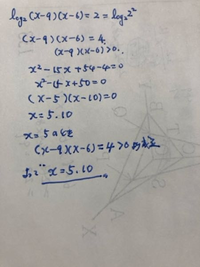 log₂(x-9)(x-6)=2=log₂2²
(x-9)(x-6)=4.
(x-9)(x-6)>0.
x²-15x+54-4=0
x²-15x+50=0
(x-5)(x-10)=0
x=5.10
(x-9)(x-6)=4>0
x=5.10
X
A
B